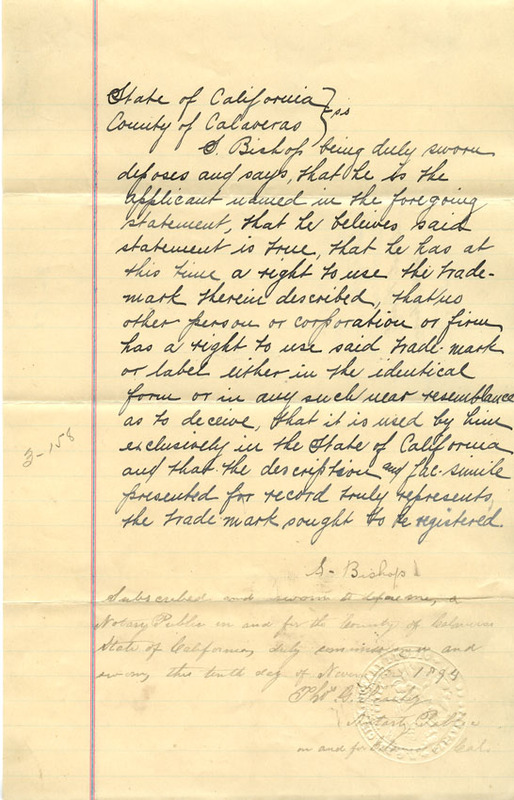 State of California } ss
County of Calaveras
S. Bishop being duly sworn
deposes and says, that he is the
applicant named in the foregoing
statement, that he beleives said
statement is true, that he has at
this time a right to use the trade-
mark therein described, that no
other person or corporation or firm
has a right to use said trade-mark
or label either in the identical
form or in any such near resemblance
as to deceive, that it is used by him
exclusively in the State of California
and that the description and fac-simile
presented for record truly represents
the trade mark sought to be registered.
3-158
S. Bishop
Subscribed and sworn to before me, a
Notary Public in and for the County of Calaveras
State of California, duly commissioned and
sworn, this tenth day of November 1894
Thos
Notary Public
in and for Calaveras Cal.